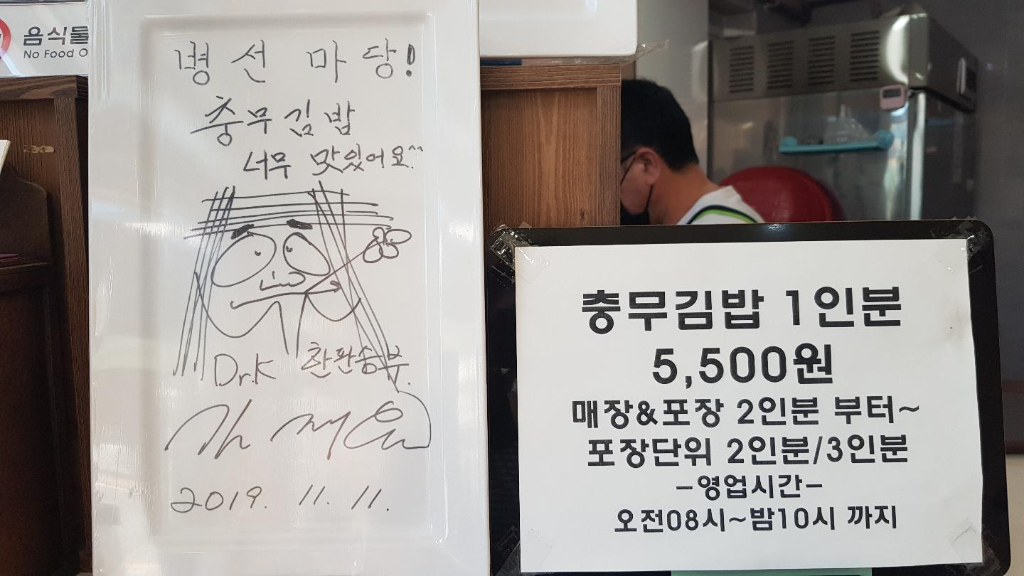 음식물
No Food O
병선 마당!
충무김밥
너무 맛있어요^^
Dr.K 한판승부
2019. 11. 11.
충무김밥 1인분
5,500원
매장&포장 2인분 부터~
포장단위 2인분/3인분
-영업시간-
오전08시~밤10시 까지